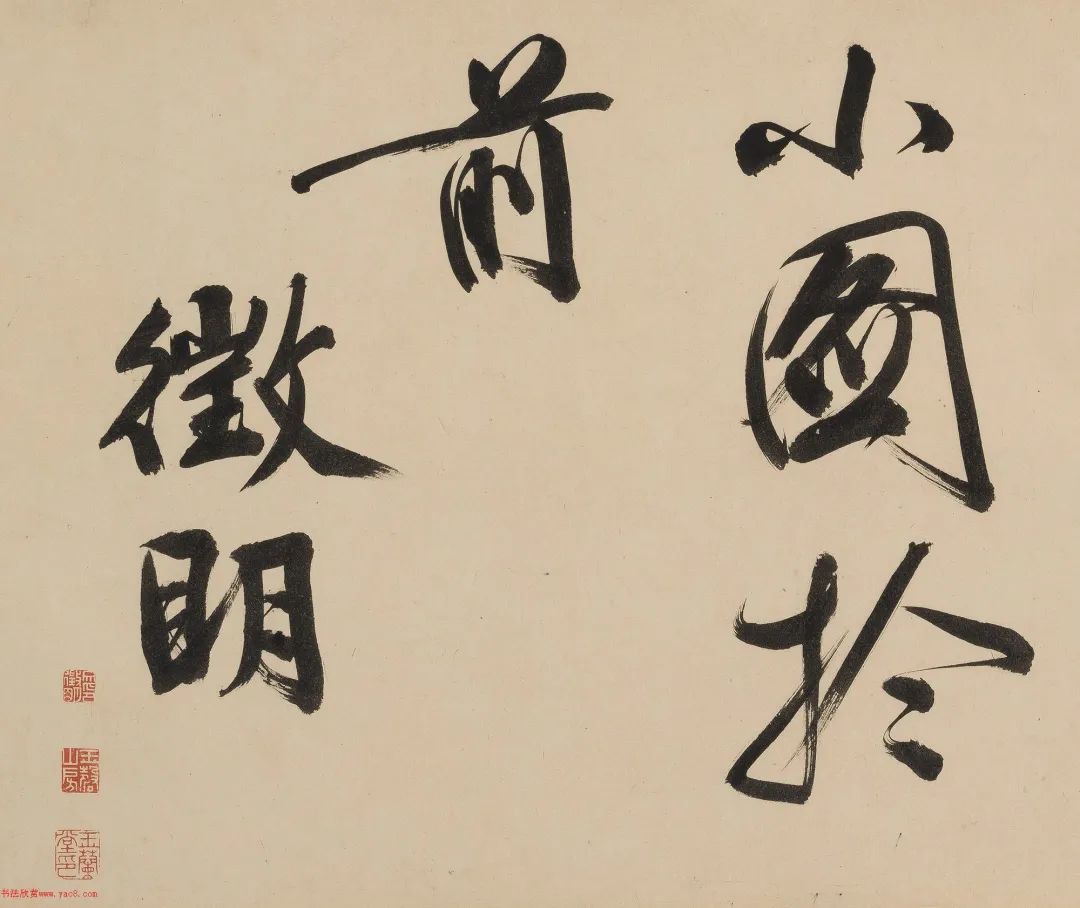 小圖於
前
徵明
徵明印
玉磬山房
玉蘭堂印
书法欣赏www.yac8.com